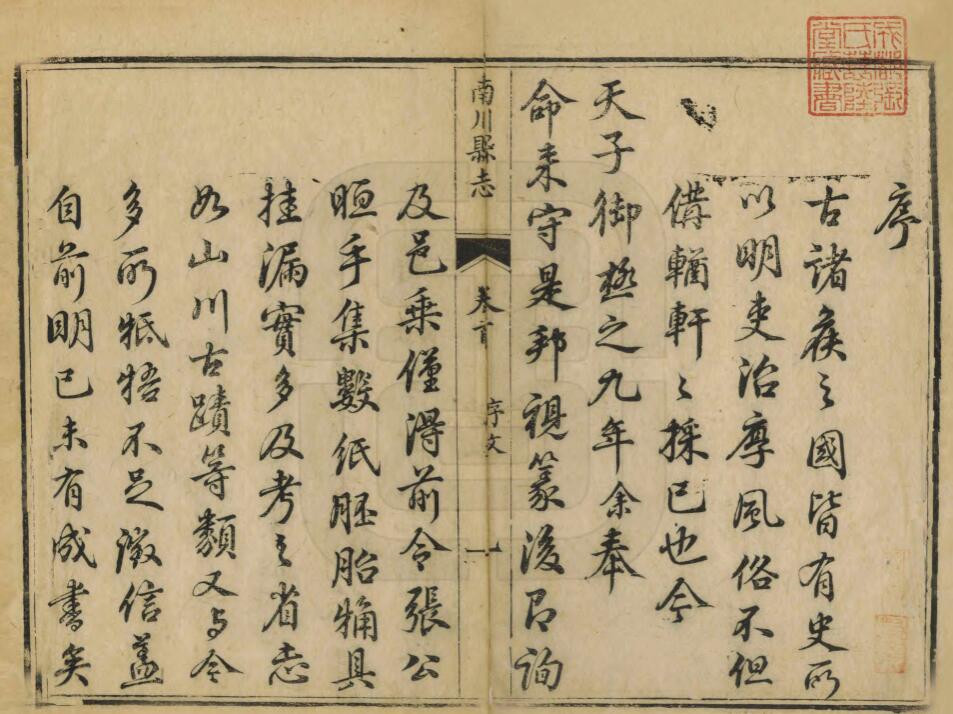 序
古諸侯之國皆有史所
以明吏治摩風俗不但
備輶軒之採已也今
天子御極之九年余奉
命来守是邦視篆後即詢
南川縣志
卷首
序文
一
及邑乗僅得前令張公
晅手集數紙胚胎觕具
挂漏實多及考之省志
如山川古蹟等類又与今
多所牴牾不足徵信葢
自前明已未有成書矣